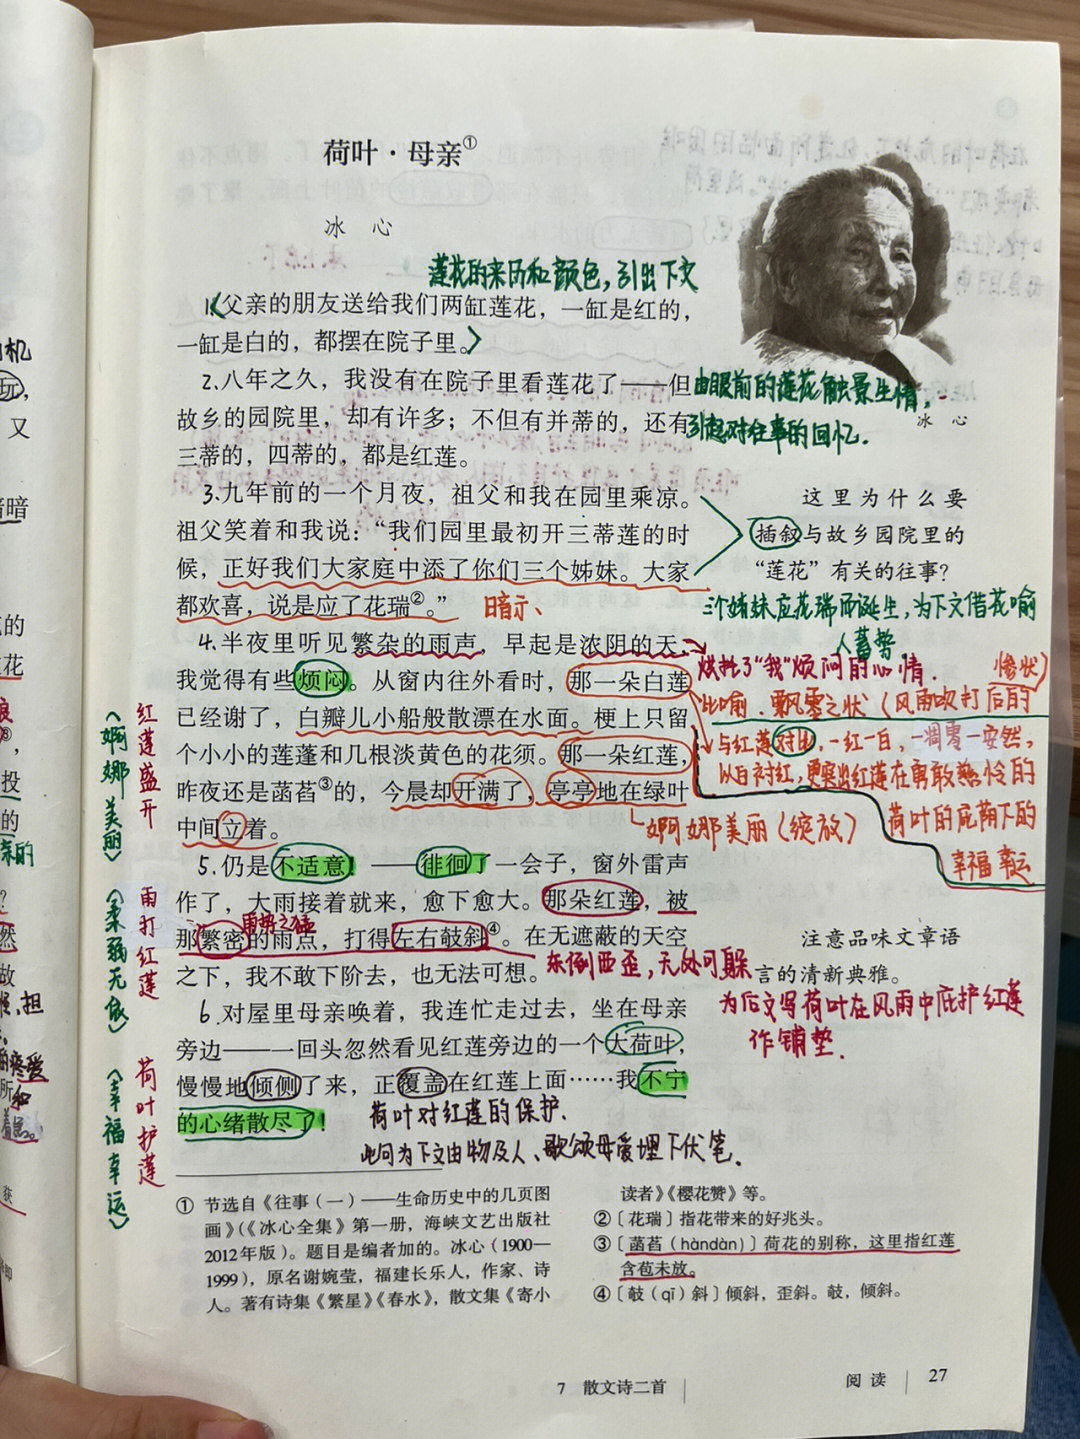 荷叶·母亲①
冰 心
莲花的来历和颜色，引出下文
1.父亲的朋友送给我们两缸莲花，一缸是红的，
一缸是白的，都摆在院子里。
2.八年之久，我没有在院子里看莲花了——但
故乡的园院里，却有许多；不但有并蒂的，还有
三蒂的，四蒂的，都是红莲。
由眼前的莲花触景生情，
引起对往事的回忆.
冰 心
3.九年前的一个月夜，祖父和我在园里乘凉。
祖父笑着和我说：“我们园里最初开三蒂莲的时
候，正好我们大家庭中添了你们三个姊妹。大家
都欢喜，说是应了花瑞②。”
暗示、
这里为什么要
插叙与故乡园院里的
“莲花”有关的往事？
三个姊妹应花瑞而诞生，为下文借花喻
人蓄势。
4.半夜里听见繁杂的雨声，早起是浓阴的天，
我觉得有些烦闷。从窗内往外看时，那一朵白莲
已经谢了，白瓣儿小船般散漂在水面。梗上只留
个小小的莲蓬和几根淡黄色的花须。那一朵红莲，
昨夜还是菡萏③的，今晨却开满了，亭亭地在绿叶
中间立着。
烘托了“我”烦闷的心情.
比喻.飘零之状（风雨吹打后的
惨状）
与红莲对比，一红一白，一凋零一安然，
以白衬红，更突出红莲在勇敢慈怜的
荷叶的庇荫下的
幸福幸运
婀娜美丽（绽放）
5.仍是不适意！——徘徊了一会子，窗外雷声
作了，大雨接着就来，愈下愈大。那朵红莲，被
雨势之猛
那繁密的雨点，打得左右攲斜④。在无遮蔽的天空
之下，我不敢下阶去，也无法可想。
东倒西歪，无处可躲
注意品味文章语
言的清新典雅。
为后文写荷叶在风雨中庇护红莲
作铺垫.
6.对屋里母亲唤着，我连忙走过去，坐在母亲
旁边——一回头忽然看见红莲旁边的一个大荷叶，
慢慢地倾侧了来，正覆盖在红莲上面……我不宁
的心绪散尽了！
荷叶对红莲的保护.
此问为下文由物及人、歌颂母爱埋下伏笔.
红莲盛开
（婀娜美丽）
雨打红莲
（柔弱无依）
荷叶护莲
（幸福幸运）
① 节选自《往事（一）——生命历史中的几页图
画》（《冰心全集》第一册，海峡文艺出版社
2012年版）。题目是编者加的。冰心（1900—
1999），原名谢婉莹，福建长乐人，作家、诗
人。著有诗集《繁星》《春水》，散文集《寄小
读者》《樱花赞》等。
②〔花瑞〕指花带来的好兆头。
③〔菡萏（hàndàn）〕荷花的别称，这里指红莲
含苞未放。
④〔攲（qī）斜〕倾斜，歪斜。攲，倾斜。
7 散文诗二首
阅读 27